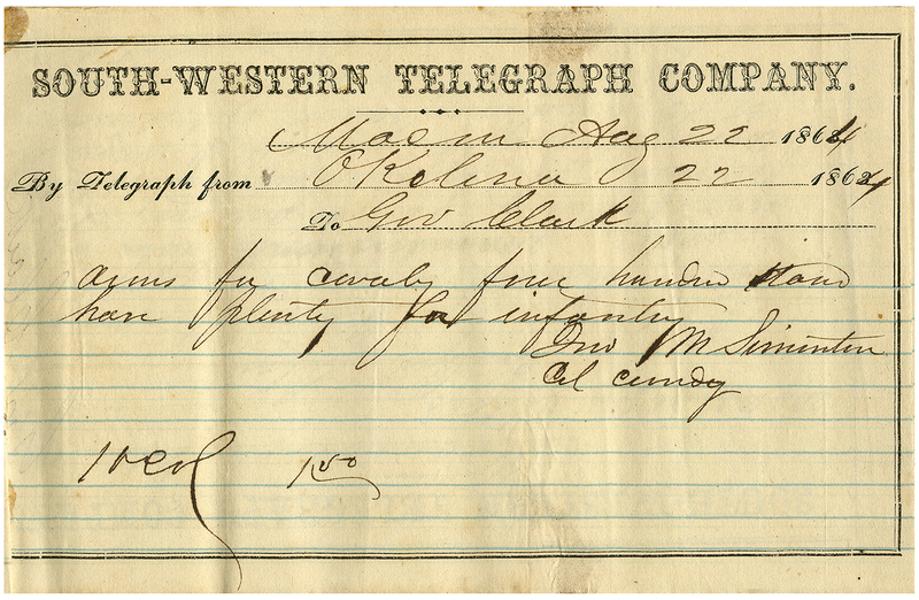 SOUTH-WESTERN TELEGRAPH COMPANY.
Macon Aug 22 1864
By Telegraph from Okolona 22 1864
To Gov Clark
arms for cavalry four hundred stand
have plenty for infantry
Jno M Siminton
Col comdg
150